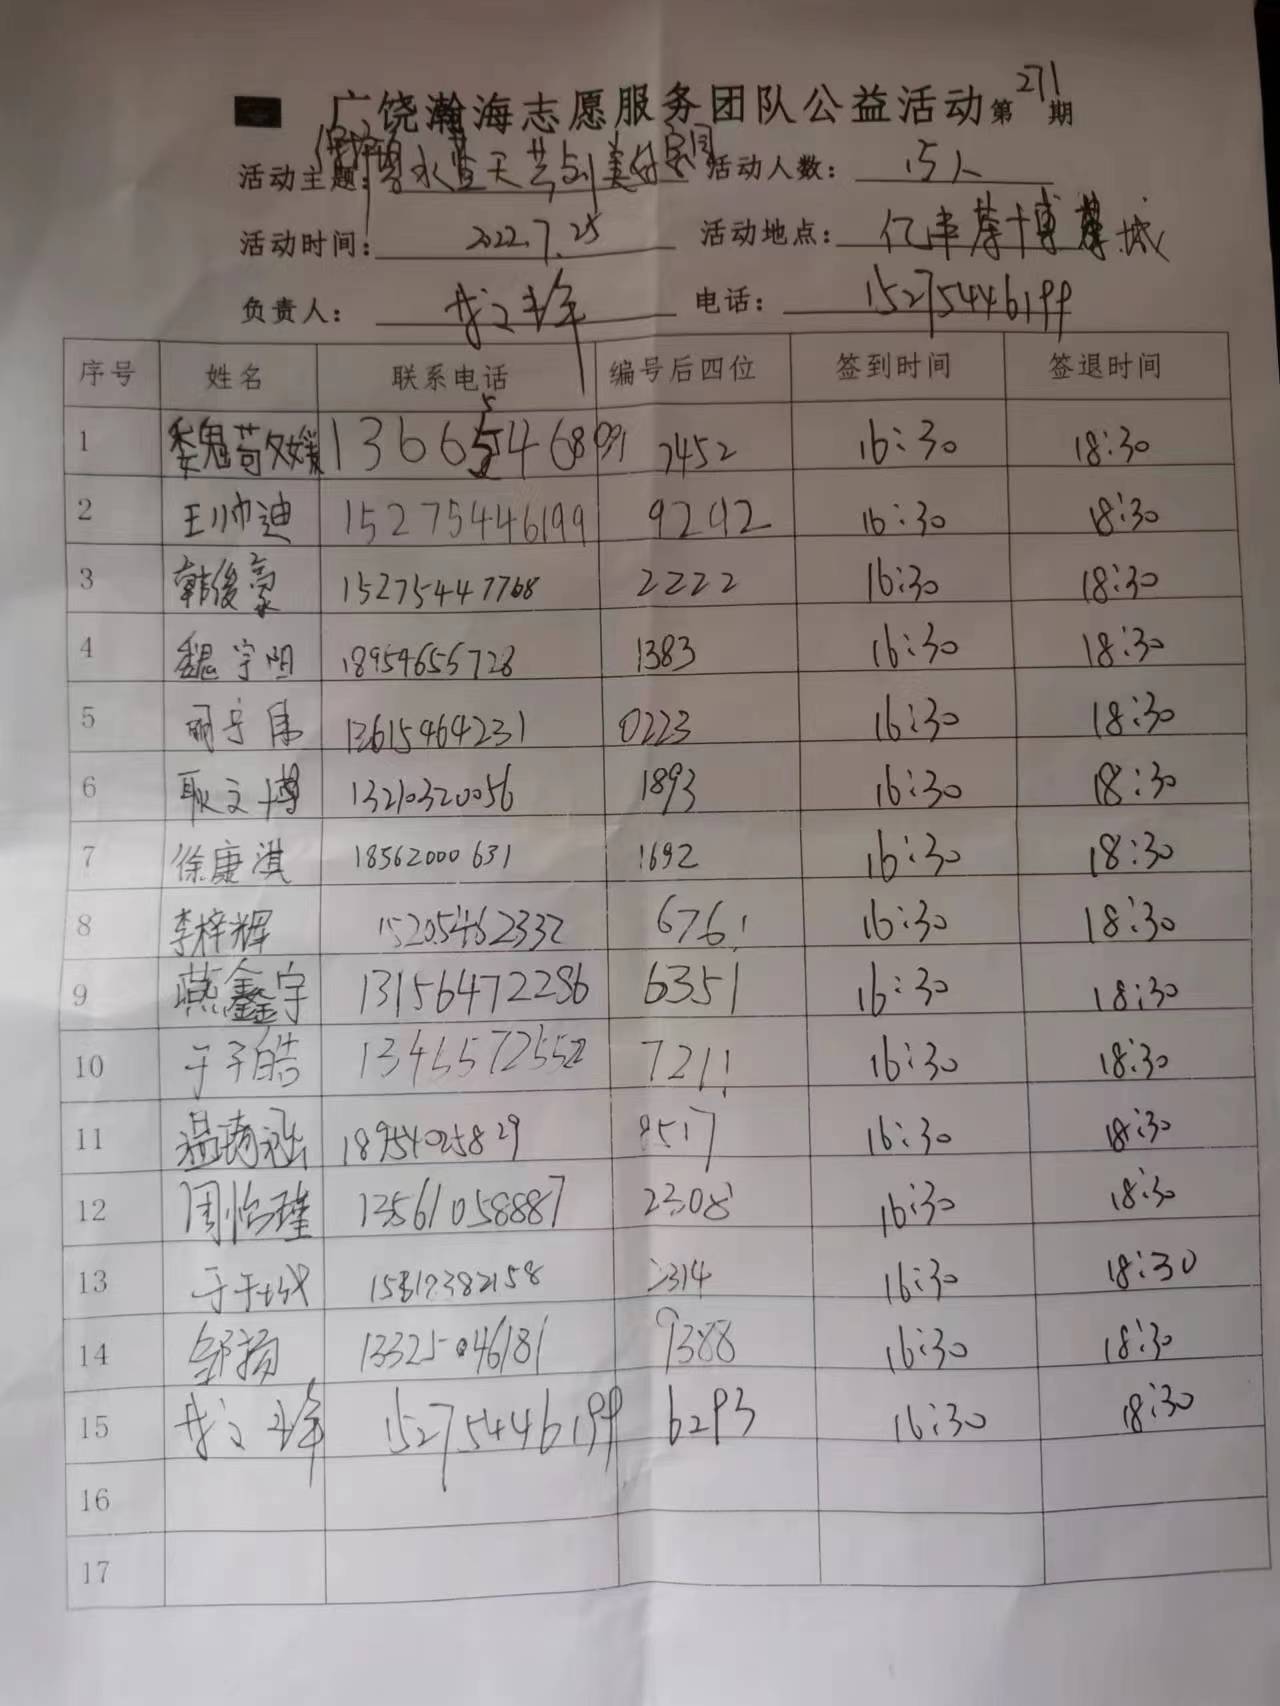 广饶瀚海志愿服务团队公益活动第271期
活动主题：保护碧水蓝天共创美好家园 活动人数：15人
活动时间：2022.7.25 活动地点：亿丰 博 城
负责人： 电话：15275446199
序号 姓名 联系电话 编号后四位 签到时间 签退时间
1 魏苟媛 13665546891 7452 16:30 18:30
2 王帅迪 15275446199 9292 16:30 18:30
3 韩俊豪 15275447768 2222 16:30 18:30
4 魏宇阳 18954655728 1383 16:30 18:30
5 明宇 13615464231 0223 16:30 18:30
6 耿文博 13210320056 1893 16:30 18:30
7 徐康淇 18562000631 1692 16:30 18:30
8 李梓辉 15205462332 6761 16:30 18:30
9 燕鑫宇 13156472286 6351 16:30 18:30
10 于子皓 13465725522 7211 16:30 18:30
11 温琦涵 18954025829 8517 16:30 18:30
12 周怡瑾 13561058887 2308 16:30 18:30
13 于 2314 16:30 18:30
14 邹扬 13325046181 9388 16:30 18:30
15 15275446199 6293 16:30 18:30
16
17